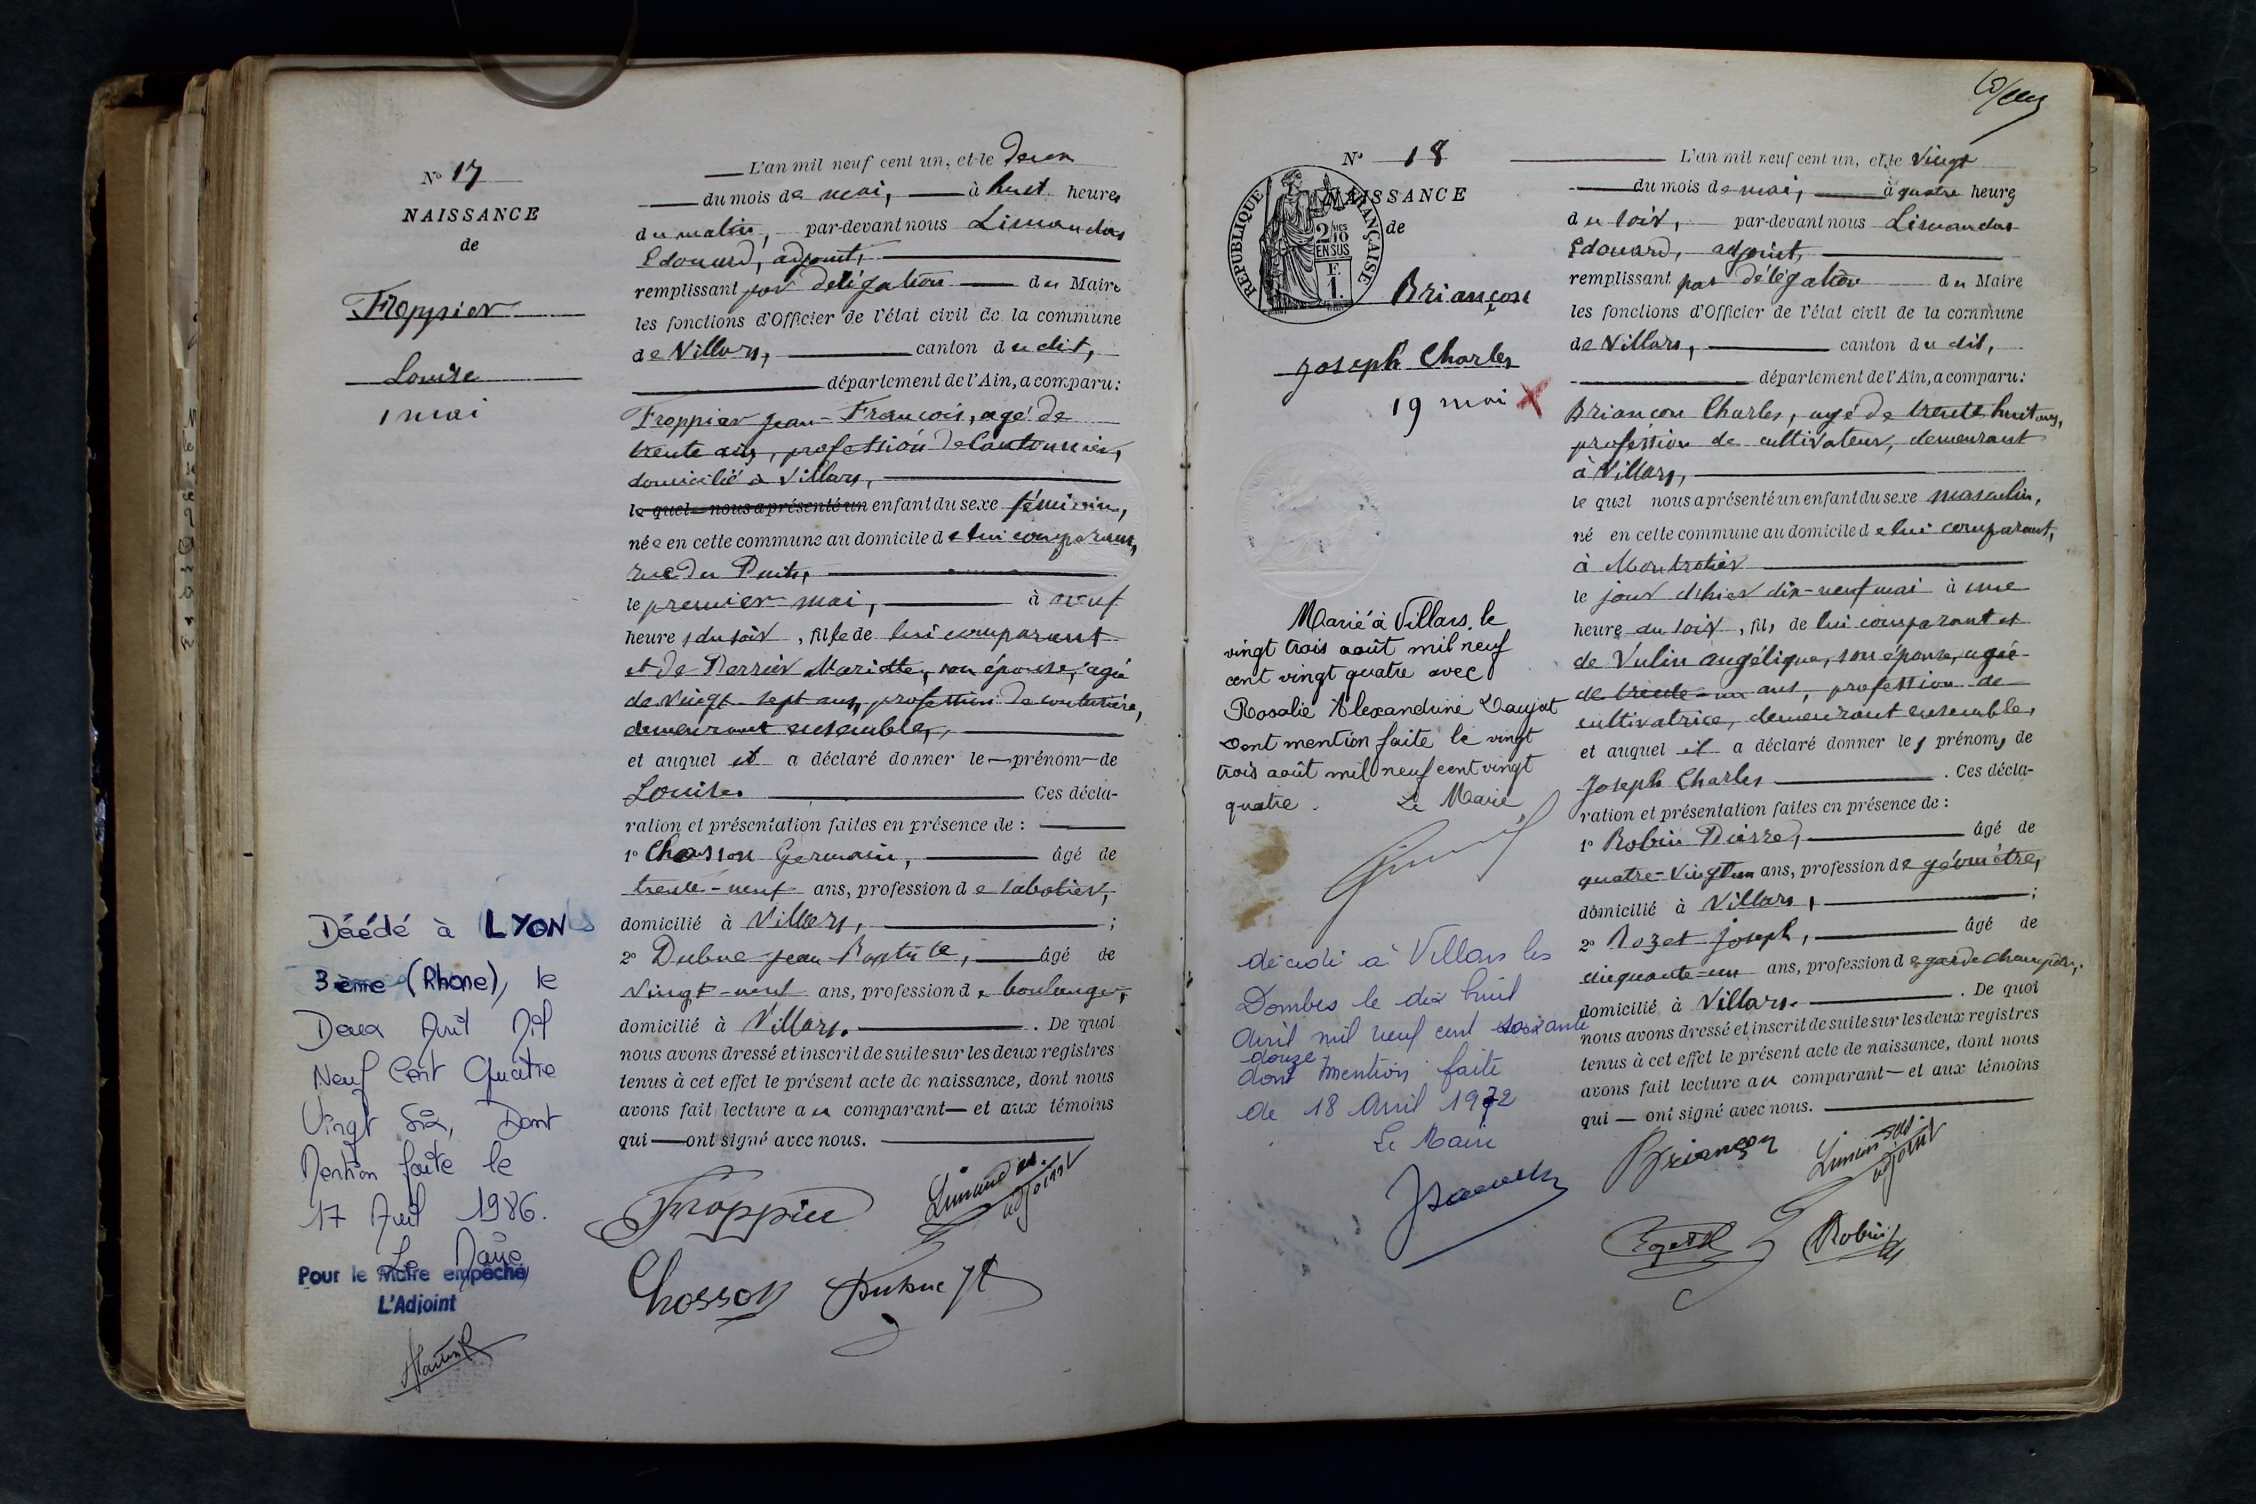 Nº 17
NAISSANCE
de
Froppier
Louise
1 mai
L'an mil neuf cent un, et le deux
du mois de mai, à huit heures
du matin, par-devant nous Limandas
Edouard, adjoint,
remplissant par délégation du Maire
les fonctions d'Officier de l'état civil de la commune
de Villars, canton du dit,
département de l'Ain, a comparu :
Froppier Jean François, agé de
trente ans, profession de Cantonnier,
domicilié à Villars,
le quel nous a présenté un enfant du sexe féminin,
née en cette commune au domicile de lui comparant,
rue du Puits,
le premier mai, à neuf
heures du soir, fille de lui comparant
et de Perrier Mariette, son épouse, agée
de vingt-sept ans, profession de couturière,
demeurant ensemble,
et auquel il a déclaré donner le prénom de
Louise. Ces décla-
ration et présentation faites en présence de :
1º Chosson Germain, âgé de
trente-neuf ans, profession de sabotier,
domicilié à Villars, ;
2º Dubuc Jean Baptiste, âgé de
vingt-neuf ans, profession de boulanger,
domicilié à Villars. De quoi
nous avons dressé et inscrit de suite sur les deux registres
tenus à cet effet le présent acte de naissance, dont nous
avons fait lecture au comparant et aux témoins
qui ont signé avec nous.
Froppier
Limandas
adjoint
Chosson
Dubuc Jt
Décédé à LYON
3ème (Rhone), le
Deux Avril Mil
Neuf Cent Quatre
Vingt Six, Dont
Mention faite le
17 Avril 1986.
Le Maire
Pour le Maire empêché
L'Adjoint
Nº 18
NAISSANCE
de
RÉPUBLIQUE FRANÇAISE
2/10 MES
EN SUS
F.
1.
Briançon
Joseph Charles
19 mai X
L'an mil neuf cent un, et le vingt
du mois de mai, à quatre heures
du soir, par-devant nous Limandas
Edouard, adjoint,
remplissant par délégation du Maire
les fonctions d'Officier de l'état civil de la commune
de Villars, canton du dit,
département de l'Ain, a comparu :
Briançon Charles, agé de trente huit ans,
profession de cultivateur, demeurant
à Villars,
le quel nous a présenté un enfant du sexe masculin,
né en cette commune au domicile de lui comparant,
à Montrotier
le jour d'hier dix-neuf mai à une
heure du soir, fils de lui comparant et
de Vulin Angélique, son épouse, agée
de trente-un ans, profession de
cultivatrice, demeurant ensemble,
et auquel il a déclaré donner les prénoms de
Joseph Charles. Ces décla-
ration et présentation faites en présence de :
1º Robin Pierre, âgé de
quatre-vingt un ans, profession de géomètre,
domicilié à Villars, ;
2º Rozet Joseph, âgé de
cinquante-un ans, profession de garde champêtre,
domicilié à Villars. De quoi
nous avons dressé et inscrit de suite sur les deux registres
tenus à cet effet le présent acte de naissance, dont nous
avons fait lecture au comparant et aux témoins
qui ont signé avec nous.
Briançon
Limandas
adjoint
Robin
Marié à Villars, le
vingt trois août mil neuf
cent vingt quatre avec
Rosalie Alexandrine Daujat
Dont mention faite le vingt
trois août mil neuf cent vingt
quatre. Le Marie
décédé à Villars les
Dombes le dix huit
Avril mil neuf cent soixante
douze
dont mention faite
de 18 Avril 1972
Le Maire